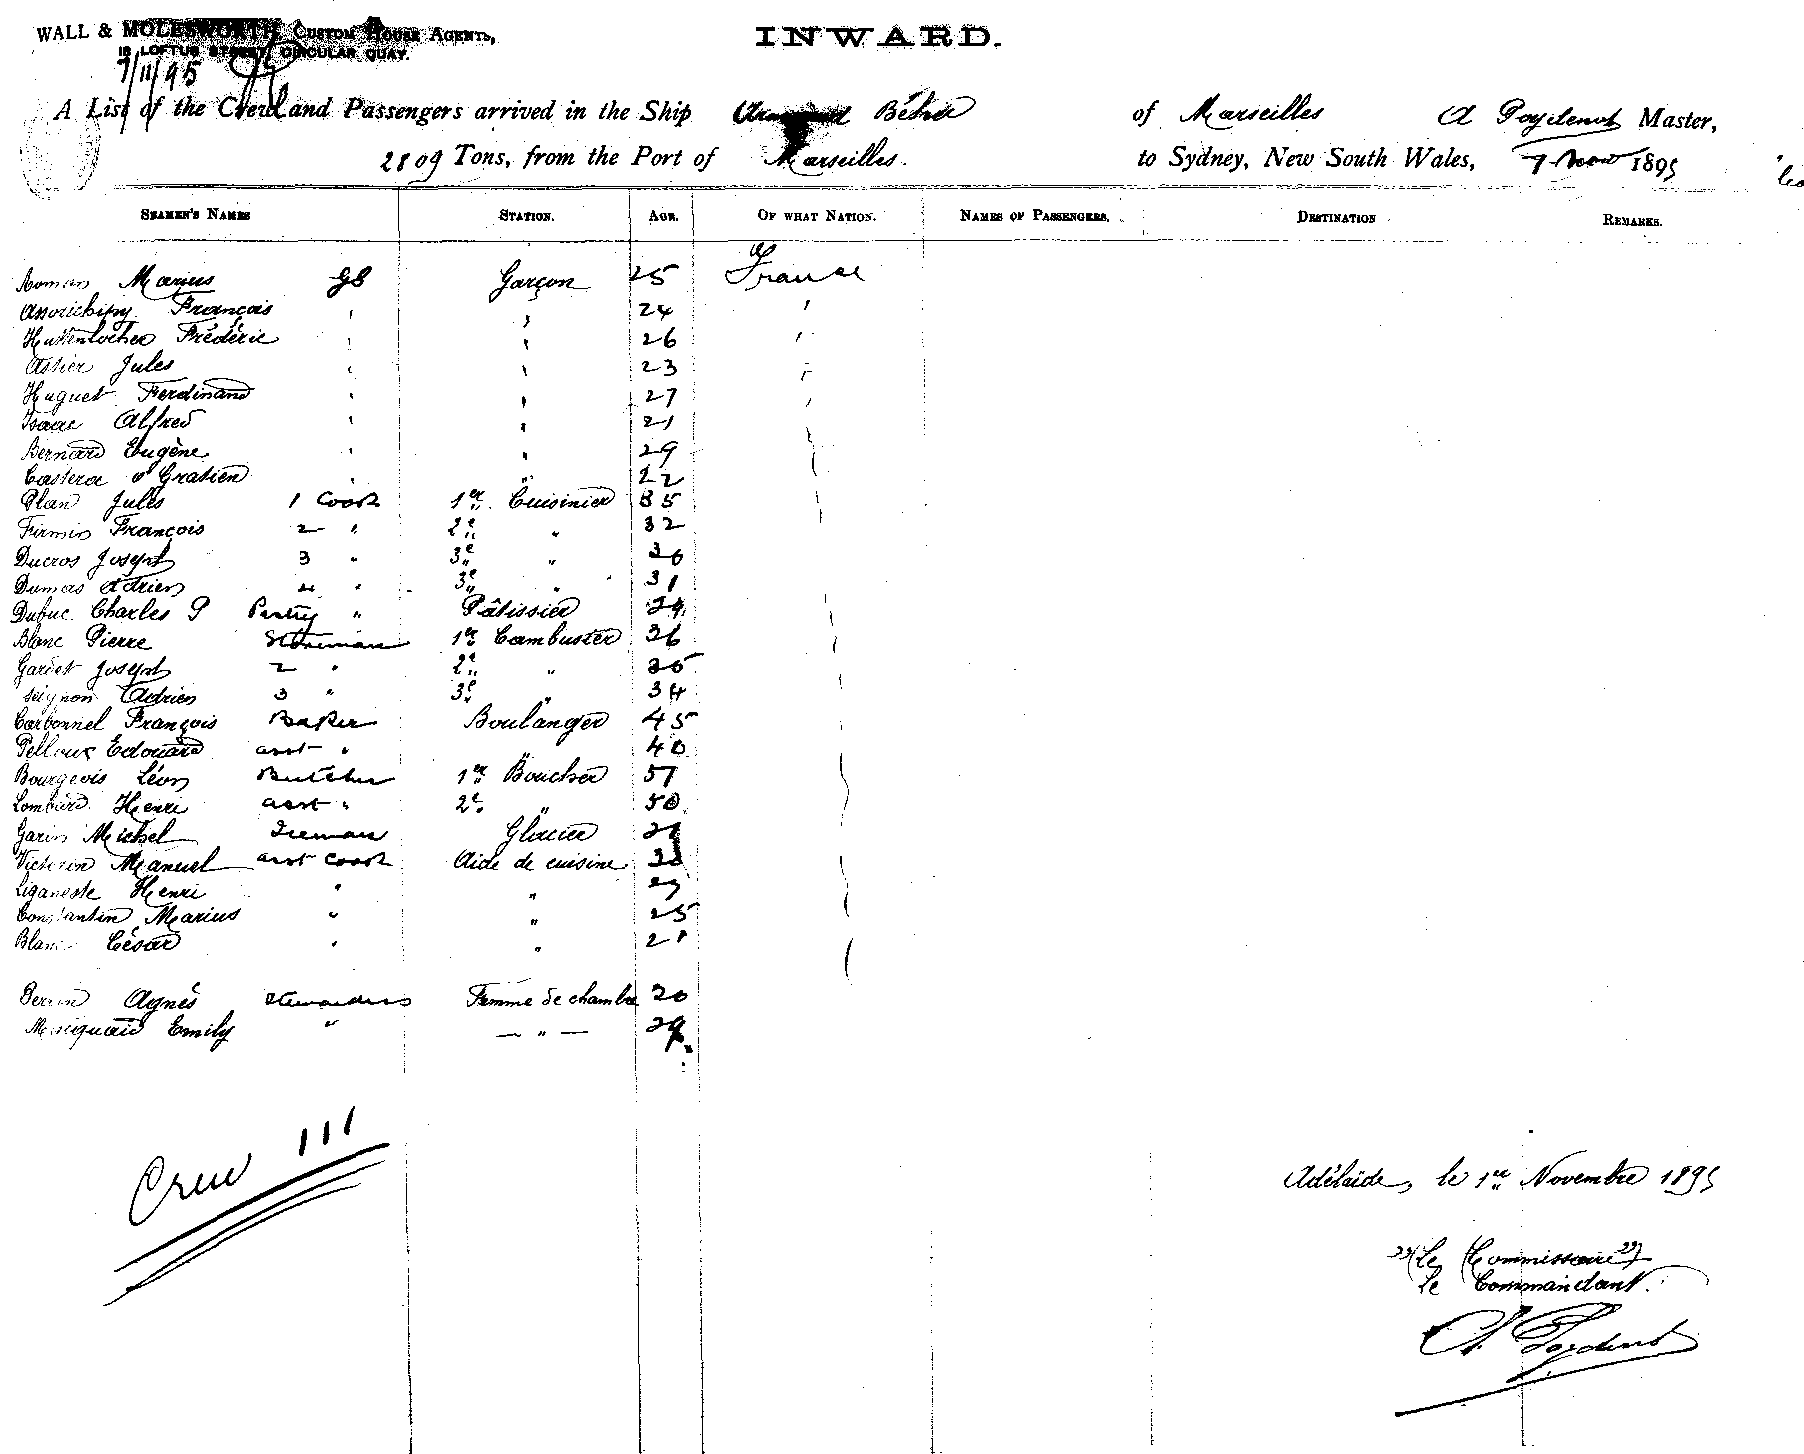 WALL & MOLESWORTH, CUSTOM HOUSE AGENTS,
LOFTUS STREET, CIRCULAR QUAY.
INWARD.
7/11/95
A List of the Crew and Passengers arrived in the Ship Armand Béhic of Marseilles A Poydenot Master,
2809 Tons, from the Port of Marseilles. to Sydney, New South Wales, 7 Nov 1895
SEAMEN'S NAMES STATION. AGE. OF WHAT NATION. NAMES OF PASSENGERS. DESTINATION REMARKS.
Roman Marius GS Garçon 25 France
François " " 24 "
Huttenlocher Frédéric " " 26 "
Astier Jules " " 23 "
Huguet Ferdinand " " 27 "
Isaac Alfred " " 21 "
Bernard Eugène " " 29
Castera Gratien " " 22
Plan Jules 1 Cook 1er Cuisinier 35
Firmin François 2 " 2e " 32
Ducros Joseph 3 " 3e " 36
Dumas Adrien 4 " 3e " 31
Dubuc Charles P Pastry " Pâtissier 29
Blanc Pierre Storeman 1er Cambusier 36
Gardet Joseph 2 " 2e "
Seignon Adrien 3 " 3e " 34
Carbonnel François Baker Boulanger 45
Pelloux Edouard asst " " 40
Bourgeois Léon Butcher 1er Boucher 57
Lombard Henri asst " 2e " 50
Garin Michel Iceman Glacier
Victorin Manuel asst Cook Aide de cuisine
Liganeste Henri " "
Constantin Marius " " 25
Blanc César " " 21
Perrin Agnès Stewardess Femme de chambre 20
Emily " — " — 29
Crew 111
Adélaïde, le 1er Novembre 1895
Le Commissaire
Le Commandant.
A. Poydenot